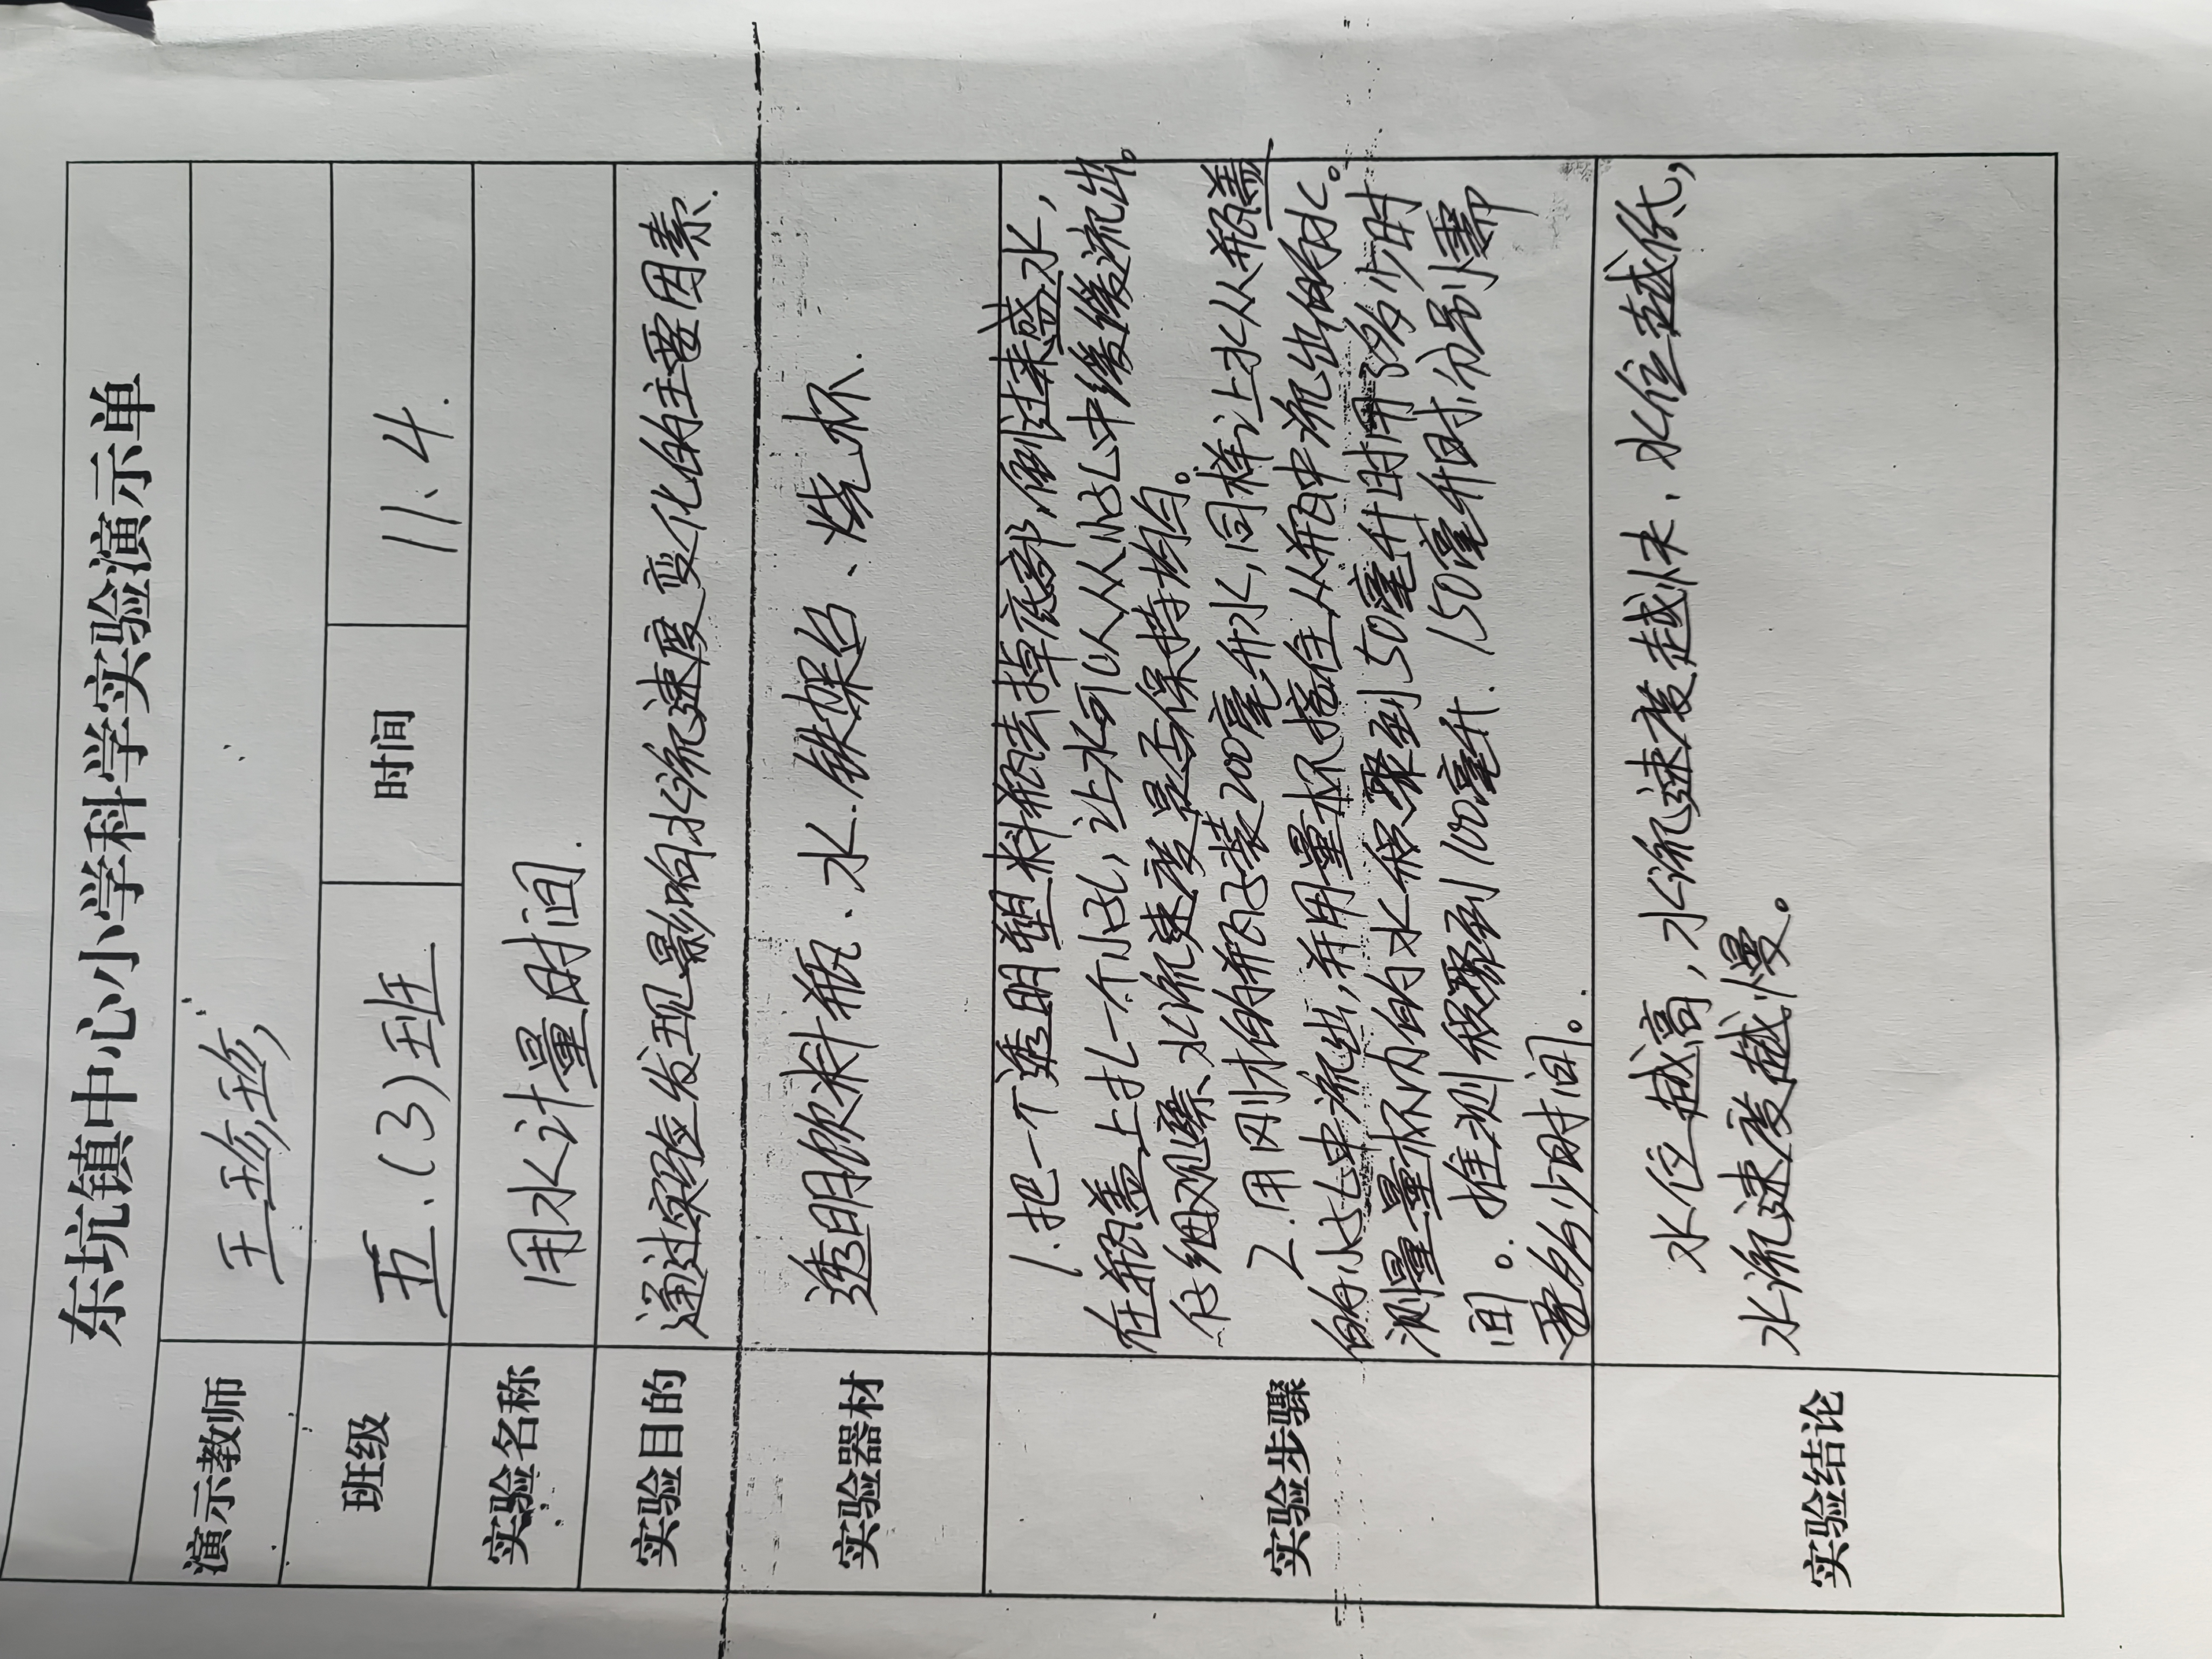 东坑镇中心小学科学实验演示单
演示教师 王珍珍
班级 五.(3)班 时间 11.4.
实验名称 用水计量时间.
实验目的 通过实验发现影响水流速度变化的主要因素.
实验器材 透明饮料瓶、水.铁架台、烧杯.
实验步骤
1.把一个透明塑料瓶去掉底部,倒过来盛水,
在瓶盖上扎一个小孔,让水可以从小孔中缓缓流出。
仔细观察、水流速度是否保持均匀。
2.用刚才的瓶子装200毫升水,同样让水从瓶盖
的小孔中流出,并用量杯接住从瓶中流出的水。
测量量杯内的水积聚到50毫升时用了多少时
间。推测积聚到100毫升.150毫升时.分别需
要多少时间。
实验结论
水位越高,水流速度越快.水位越低,
水流速度越慢。